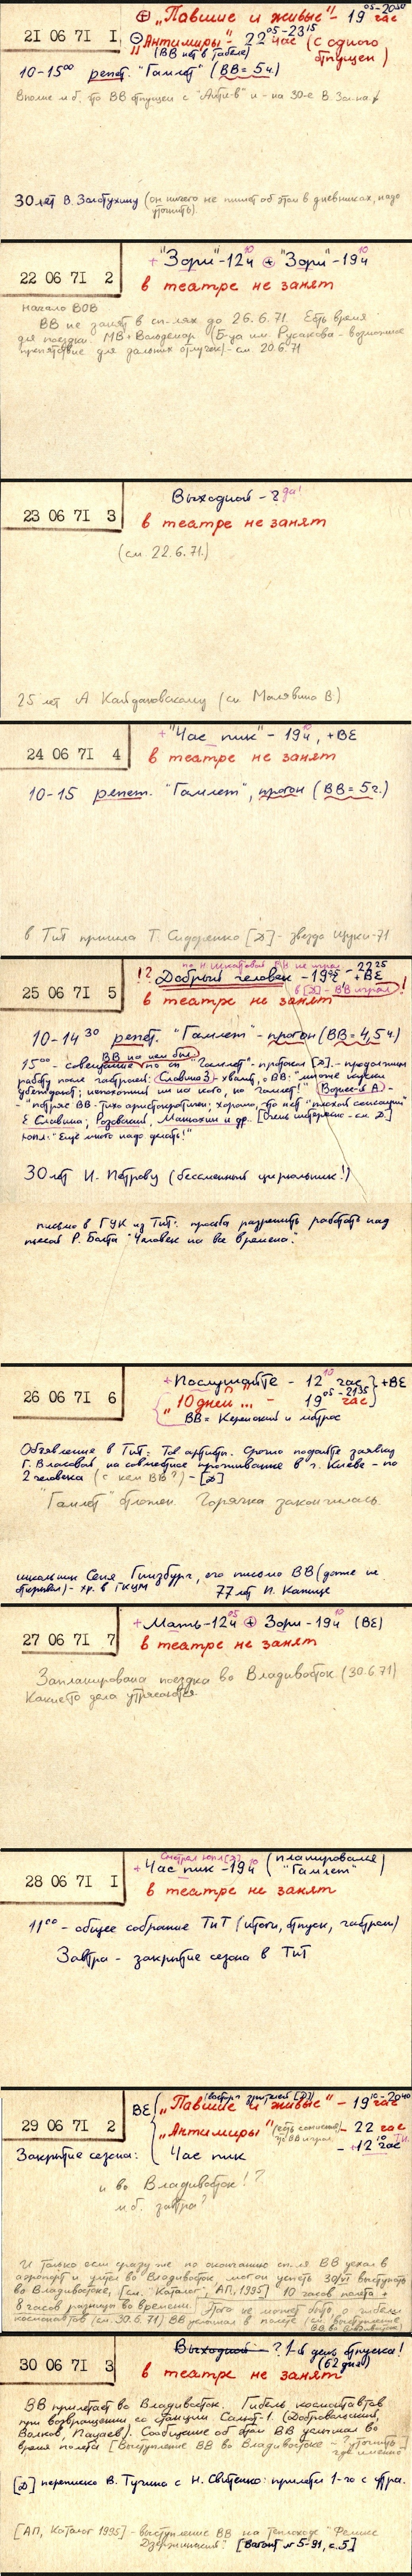 ⊕ „Павшие и живые" - 19 05-20 50 час
21 06 71 1
⊖ „Антимиры" - 22 05-23 15 час (с одного
(ВВ нет в табеле) отпущен)
10-15 00 репет. "Гамлет" (ВВ = 5 ч.)
Вполне м.б. что ВВ отпущен с "Анти-в" и - на 30-е В. Зол-на
30 лет В. Золотухину (он ничего не пишет об этом в дневниках, надо
уточнить).
+ "Зори" - 12 ч 10 ⊕ "Зори" - 19 ч 10
22 06 71 2
в театре не занят
начало ВОВ
ВВ не занят в сп-лях до 26.6.71. Есть время
для поездки МВ+Володенор (Б-ца им. Русакова - возможное
препятствие для дальних отлучек) - см. 20.6.71
Выходной - ? да!
23 06 71 3
в театре не занят
(см. 22.6.71.)
25 лет А. Кайдановскому (см. Малявина В.)
+ "Час пик" - 19 ч 10, + ВЕ
24 06 71 4
в театре не занят
10-15 репет. "Гамлет", прогон (ВВ = 5 г.)
в ТиТ пришла Т. Сидоренко [Д] - звезда Щуки-71
по Н. Шкатовой ВВ не играл
!? Добрый человек - 19 05 - 22 25 + ВЕ
в [Д] - ВВ играл !
25 06 71 5
в театре не занят
10-14 30 репет. "Гамлет" - прогон (ВВ = 4,5 ч.)
ВВ на нем был
15 00 - совещание по сп "Гамлет" - протокол [Д] - продолжит
работу после гастролей: Славина З - хвалит, „ВВ - многие куски
убеждают; непохожий ни на кого, на "Гамлет!" Ворон-в А -
- "потряс ВВ. Тихо аристократичен; хорошо, что нет "плохой сенсации"
Е Славина; Розовский, Матюхин и др. [Очень интересно - см. Д]
Юпл: "Еще много надо делать!"
30 лет И. Петрову (бессменный цирюльник!)
письмо в ГУК из ТиТ: просьба разрешить работать над
пьесой Р. Болта "Человек на все времена."
+ Послушайте - 12 10 час } + ВЕ
26 06 71 6
„10 дней ... - 19 05 - 21 35 час
ВВ = Керенский и матрос
Объявление в ТиТ: Тов артисты. Срочно подайте заявку
Г. Власовой, на совместное проживание в г. Киеве - по
2 человека (с кем ВВ?) - [Д]
"Гамлет" отложен. Горячка закончилась.
школьник Сеня Гинзбург, его письмо ВВ (даже не
открывал) - хр. в ГКЦМ 77 лет П. Капице
+ Мать - 12 ч 05 ⊕ Зори - 19 ч 10 (ВЕ)
27 06 71 7
в театре не занят
Запланирована поездка во Владивосток. (30.6.71)
Какие-то дела утрясаются.
Смотрел юпл [Д]
+ Час пик - 19 ч 10 (планировался
"Гамлет")
28 06 71 1
в театре не занят
11 00 - общее собрание ТиТ (итоги, отпуск, гастроли)
Завтра - закрытие сезона в ТиТ
ВЕ { „Павшие и живые" - 19 10 - 20 40 час
29 06 71 2
„Антимиры" (есть сомнения - 22 час
что ВВ играл
Закрытие сезона: Час пик - + 12 10 час
и во Владивосток!?
м.б. завтра?
И только если сразу же по окончанию сп-ля ВВ уехал в
аэропорт и улетел во Владивосток мог он успеть 30/VI выступать
во Владивостоке, [см. "Каталог", АП, 1995] 10 часов полета +
8 часов разница во времени. Этого не может быть, о гибели
космонавтов (см. 30.6.71) ВВ услышал в полете (см. выступление
ВВ во Владивостоке)
Выходной - ? 1-й день отпуска!
(62 дня)
30 06 71 3
в театре не занят
ВВ прилетает во Владивосток. Гибель космонавтов
при возвращении со станции Салют-1. (Добровольский,
Волков, Пацаев). Сообщение об этом ВВ услышал во
время полета [Выступление ВВ во Владивостоке - ? уточнить
где именно]
[Д] переписка В. Тучина с Н. Свитенко: прилетел 1-го с утра.
[АП, Каталог 1995] - выступление ВВ на теплоходе "Феликс
Дзержинский". [Вагант № 5-91, с.5]